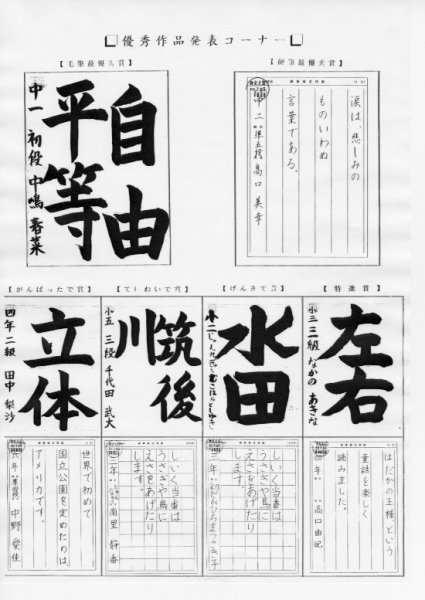 優秀作品発表コーナー
【毛筆最優秀賞】
自由
平等
中一 初段 中嶋 春菜
【硬筆最優秀賞】
涙は 悲しみの
ものいわぬ
言葉である。
中二 準五段 高口 美幸
【特選賞】
左右
小三 三級 なかの あきな
【げんきで賞】
水田
【ていねいで賞】
筑後川
小五 三段 千代田 武大
【がんばったで賞】
立体
四年 二級 田中 梨沙
はだかの王様という
童話を楽しく
読みました。
四年 高口由妃
しいく当番は
うさぎや鳥に
えさをあげたり
します。
しいく当番は
うさぎや鳥に
えさをあげたり
します。
三年 南里 静香
世界で初めて
国立公園を定めたのは、
アメリカです。
六年 中野 愛佳